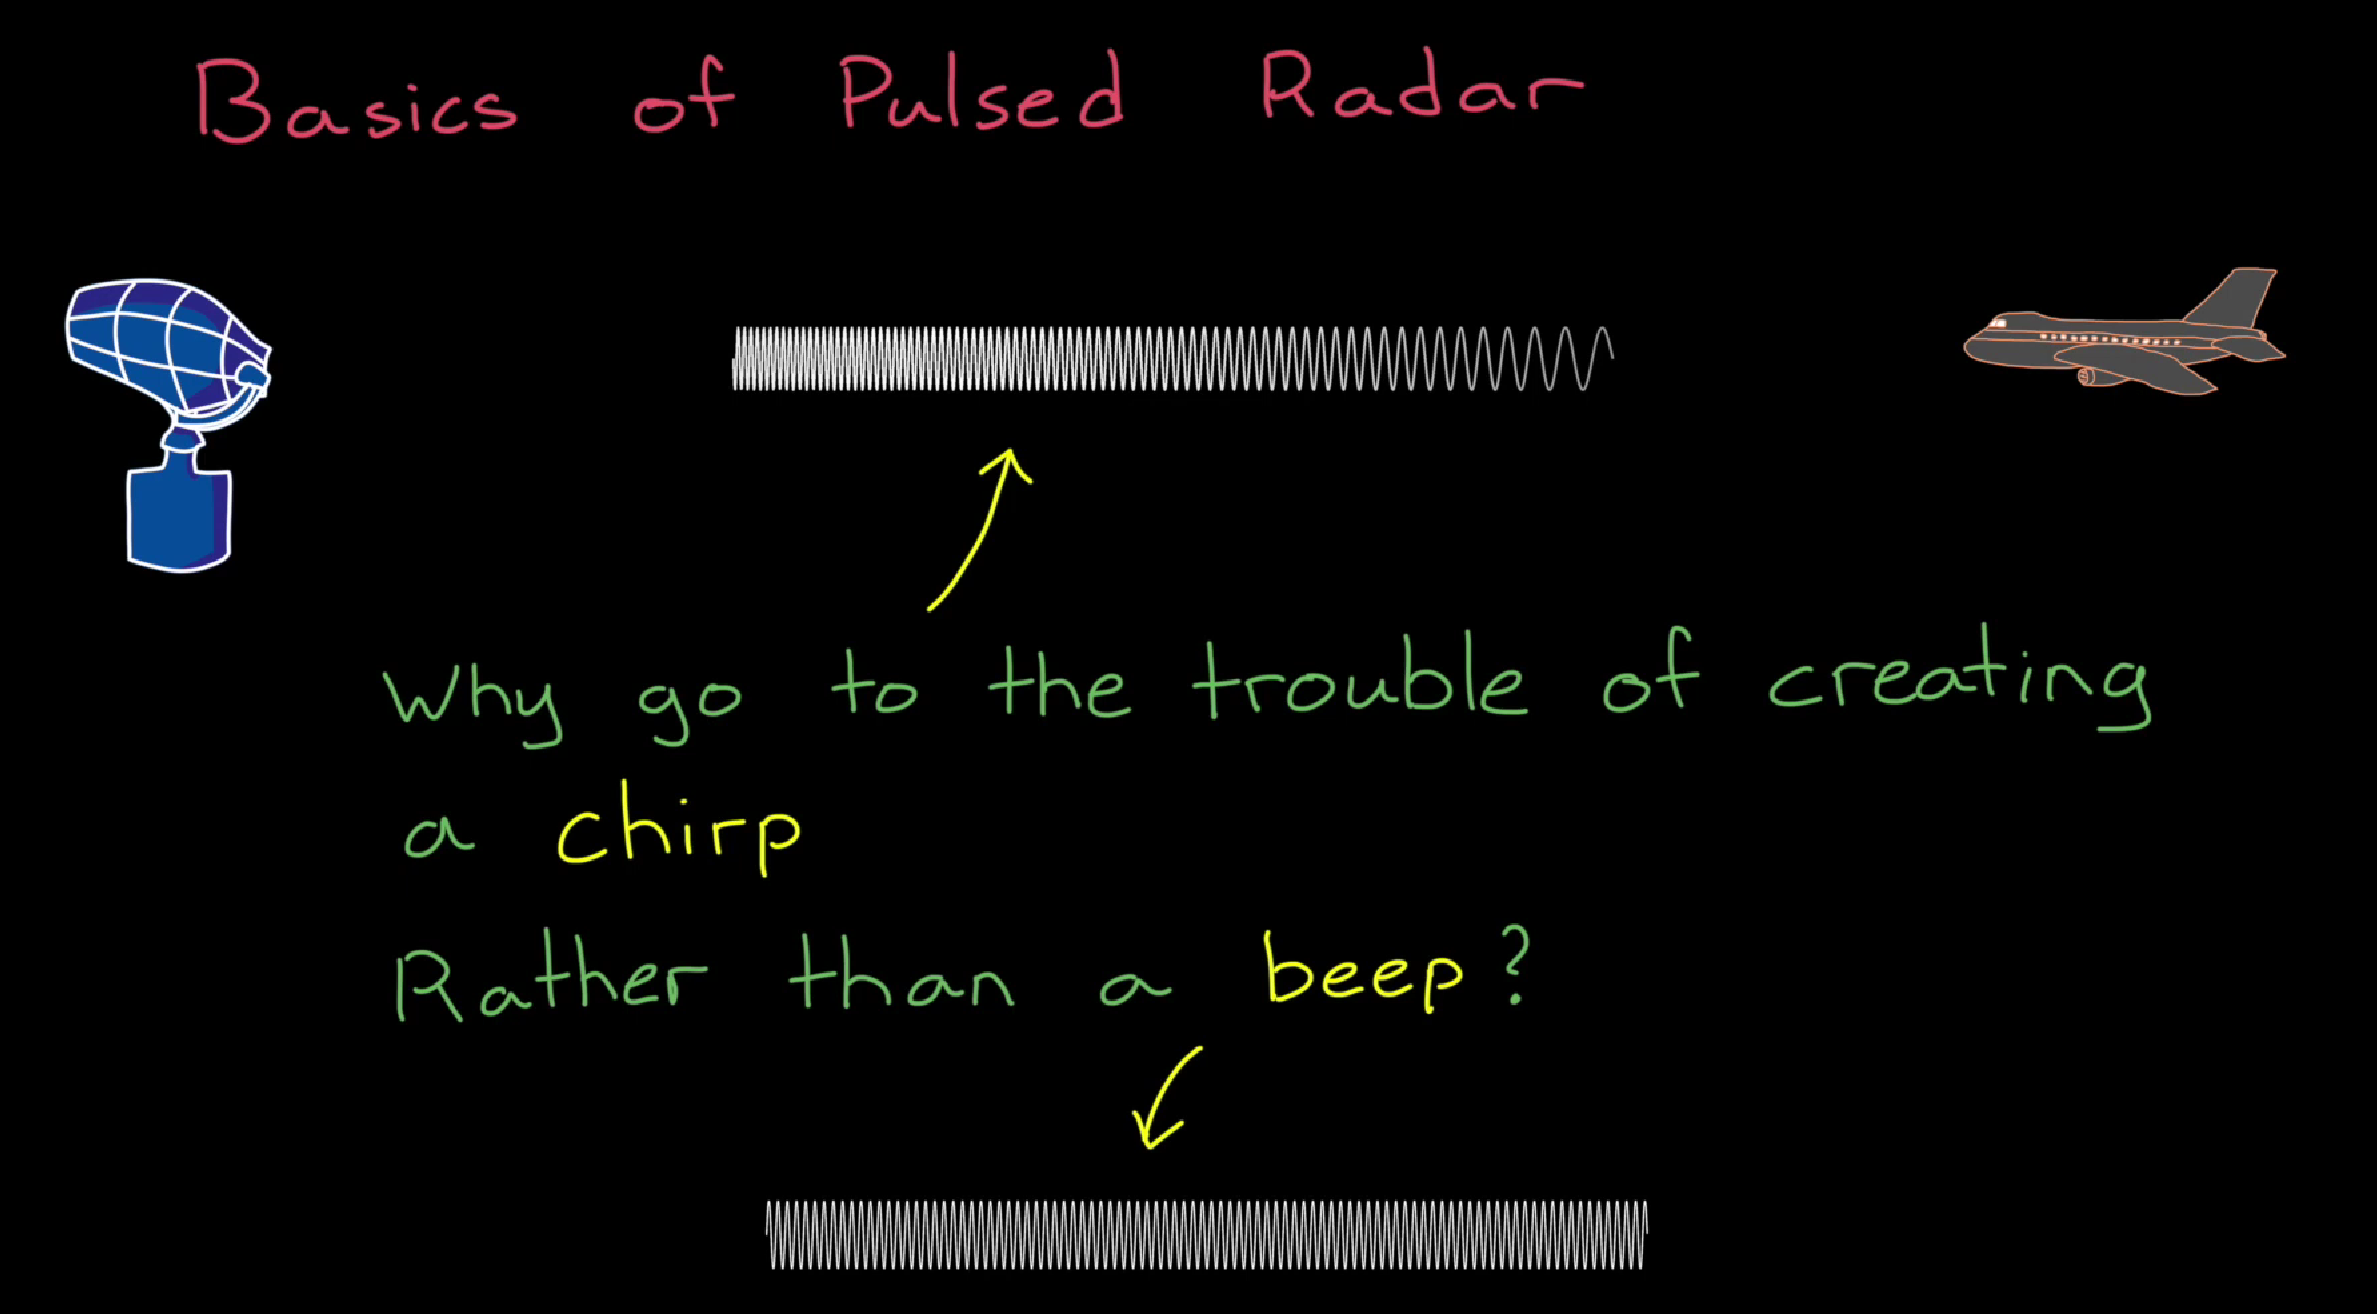 Basics of Pulsed Radar
Why go to the trouble of creating
a chirp
Rather than a beep?